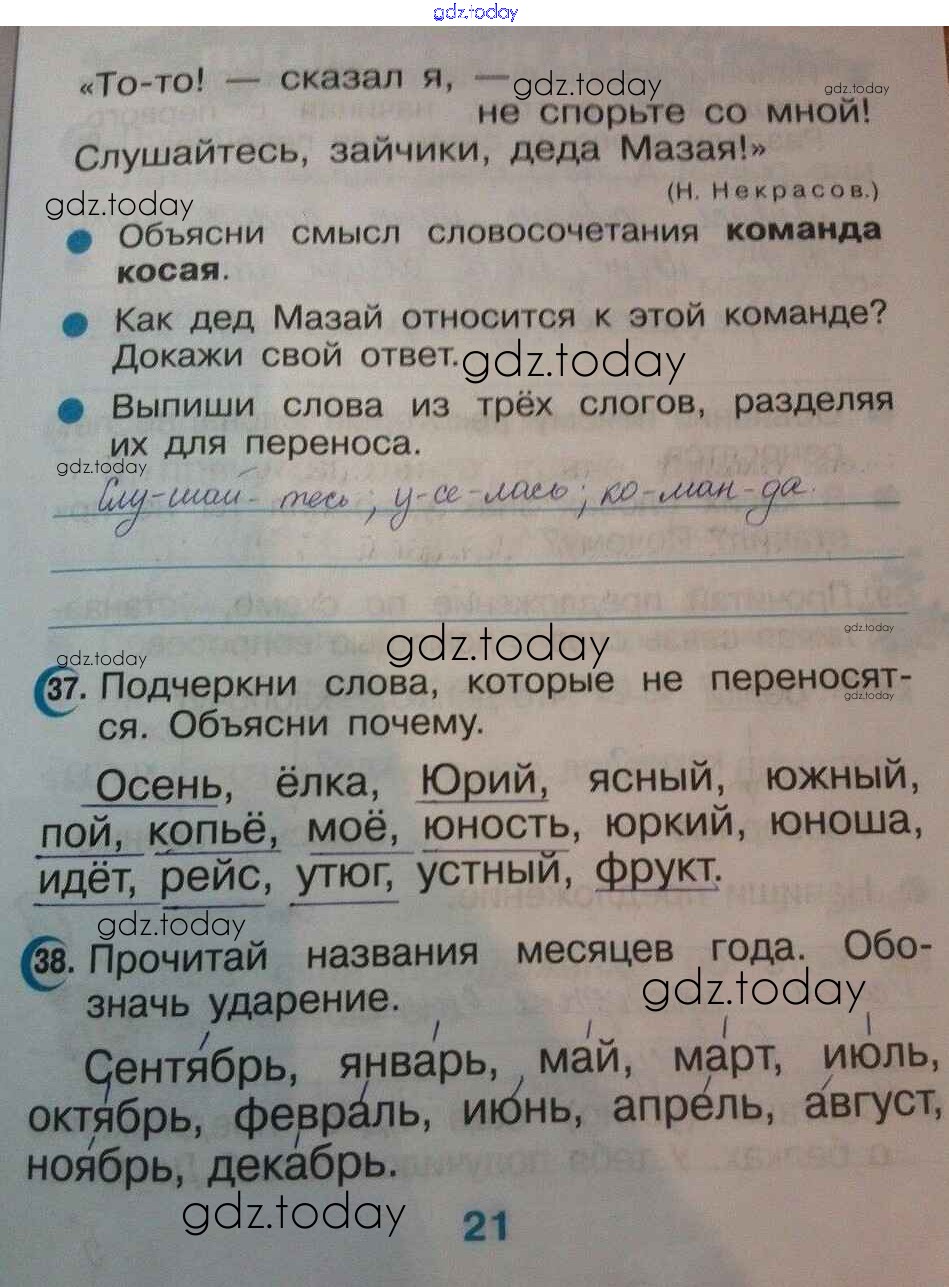 gdz.today
«То-то! — сказал я, —
gdz.today
gdz.today
не спорьте со мной!
Слушайтесь, зайчики, деда Мазая!»
(Н. Некрасов.)
gdz.today
Объясни смысл словосочетания команда
косая.
Как дед Мазай относится к этой команде?
Докажи свой ответ.
gdz.today
Выпиши слова из трёх слогов, разделяя
их для переноса.
gdz.today
Слу-шай-тесь; у-се-лась; ко-ман-да.
gdz.today
gdz.today
gdz.today
37. Подчеркни слова, которые не переносят-
gdz.today
ся. Объясни почему.
Осень, ёлка, Юрий, ясный, южный,
пой, копьё, моё, юность, юркий, юноша,
идёт, рейс, утюг, устный, фрукт.
gdz.today
38. Прочитай названия месяцев года. Обо-
значь ударение.
gdz.today
Сентябрь, январь, май, март, июль,
октябрь, февраль, июнь, апрель, август,
ноябрь, декабрь.
gdz.today
21